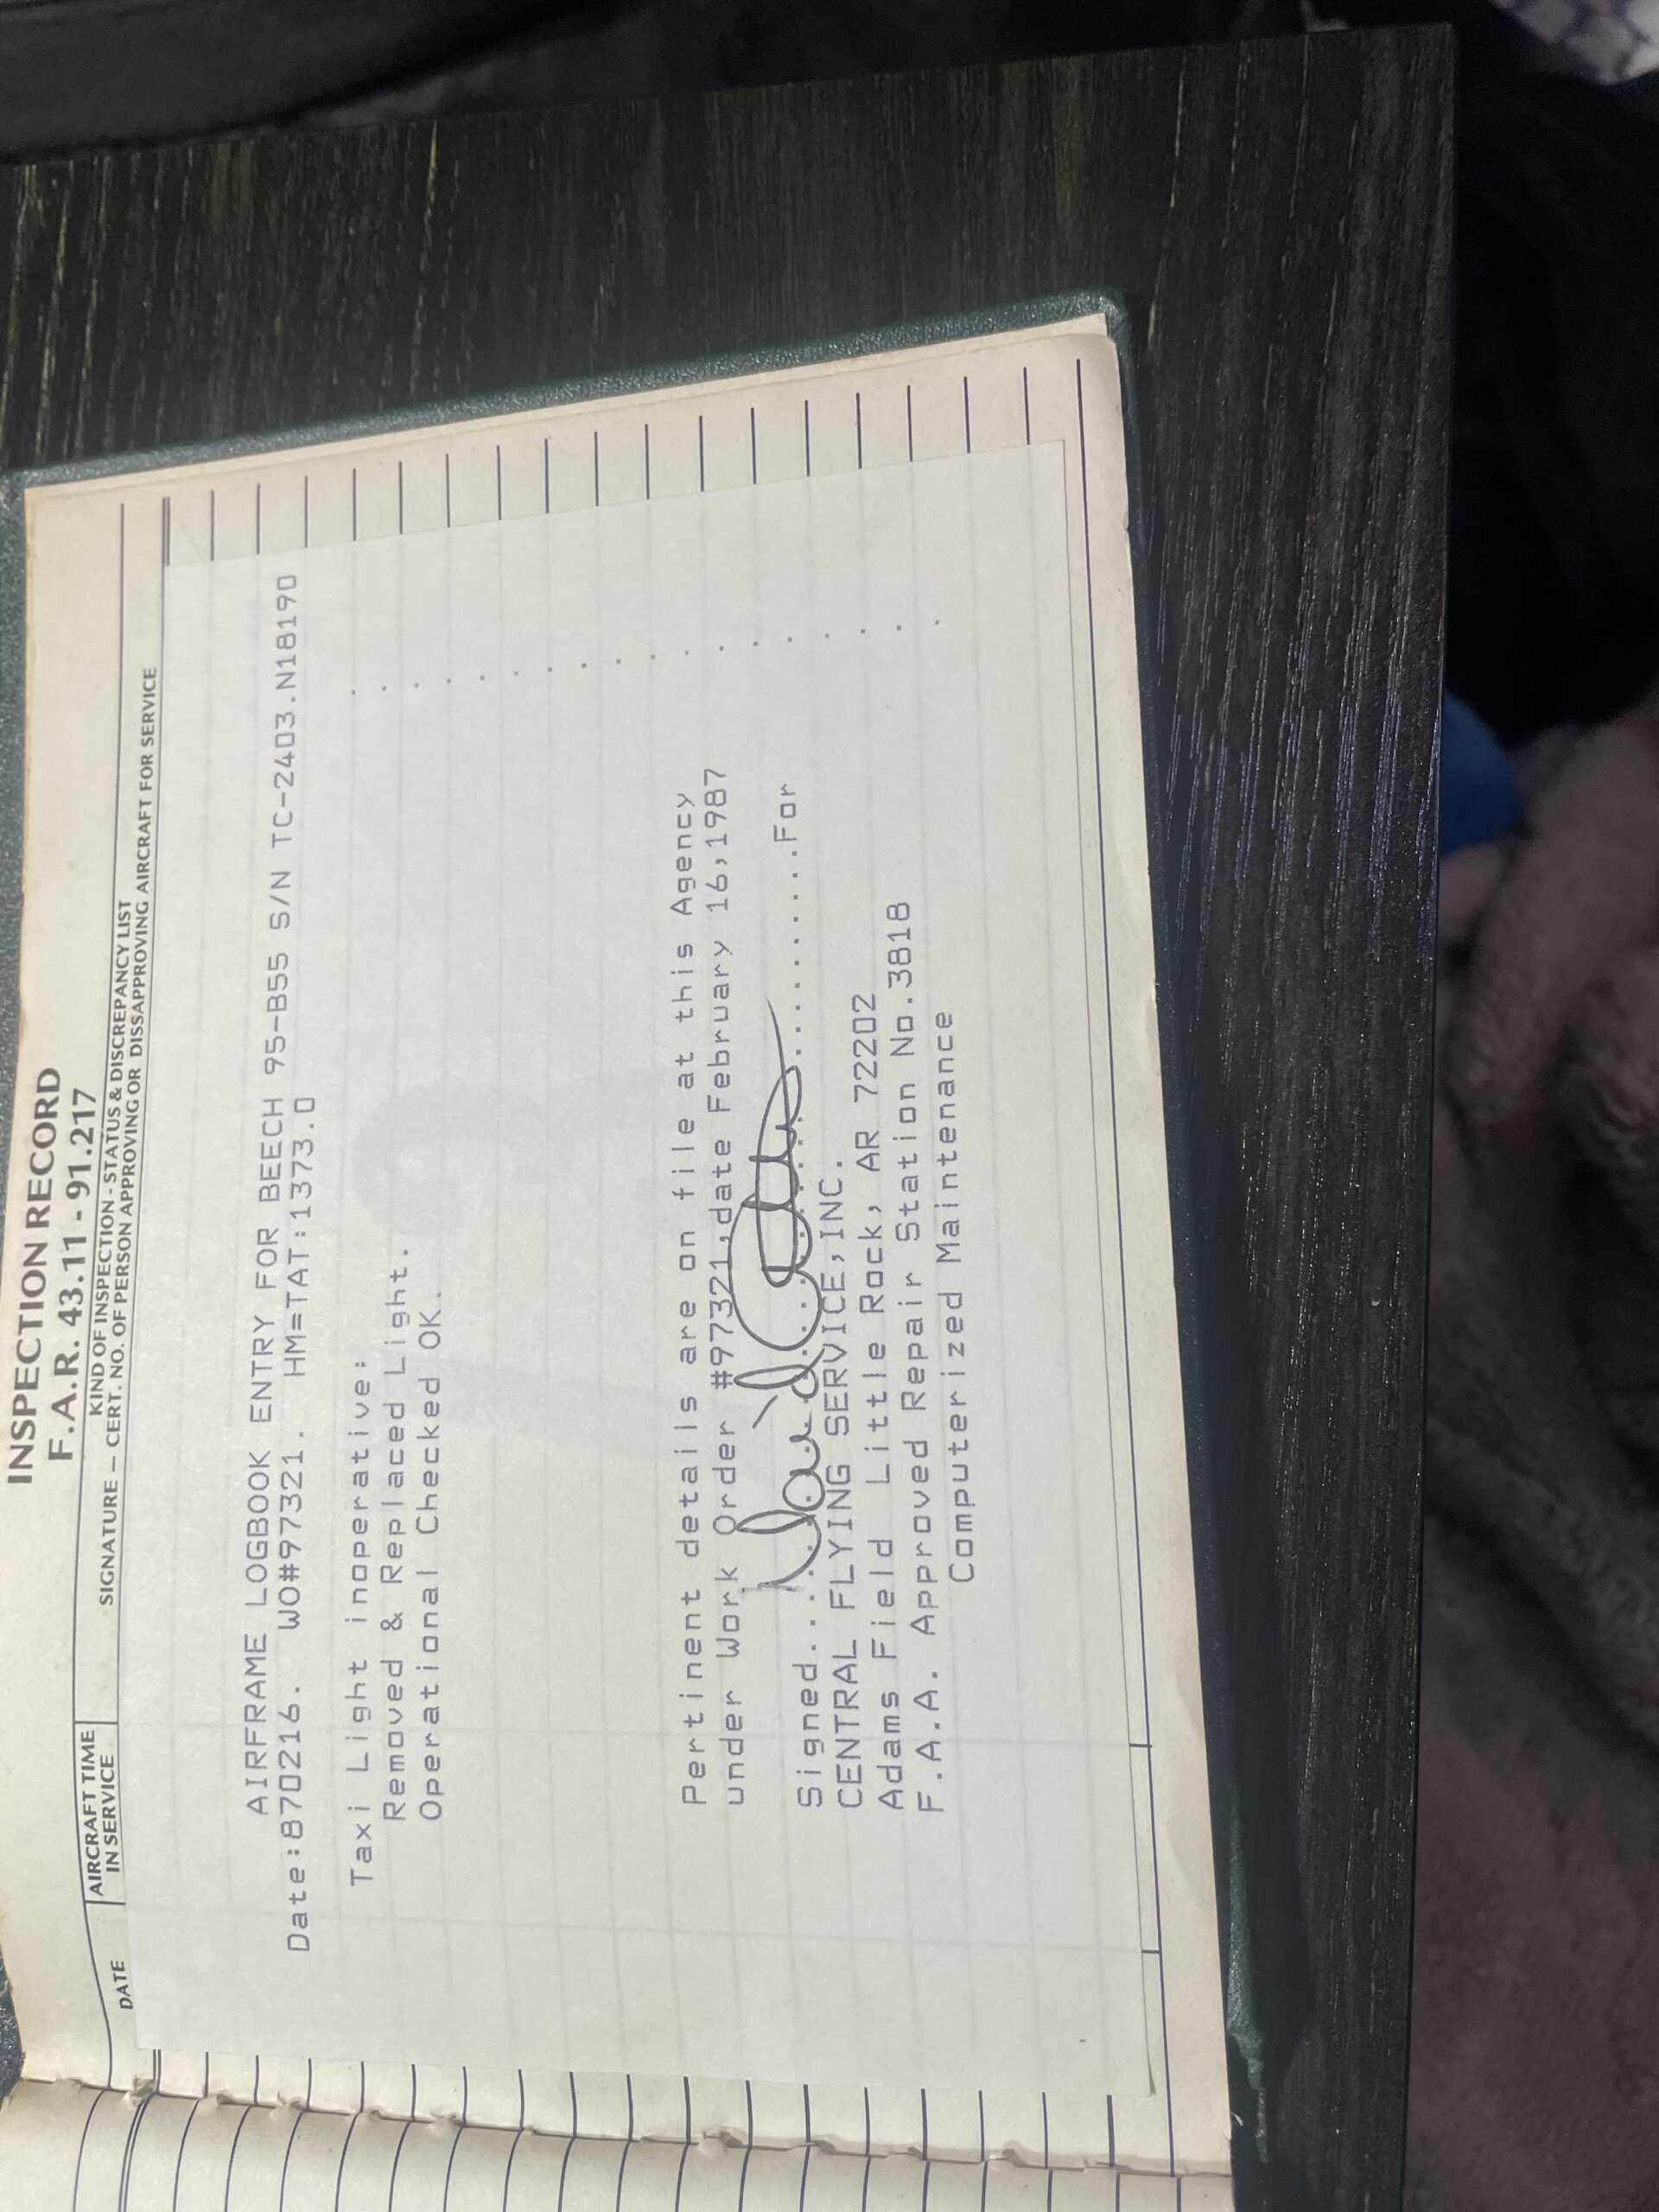 INSPECTION RECORD
F.A.R. 43.11 - 91.217
DATE
AIRCRAFT TIME
IN SERVICE
KIND OF INSPECTION - STATUS & DISCREPANCY LIST
SIGNATURE – CERT. NO. OF PERSON APPROVING OR DISAPPROVING AIRCRAFT FOR SERVICE
AIRFRAME LOGBOOK ENTRY FOR BEECH 95-B55 S/N TC-2403.N18190
Date:870216. WO#97321. HM=TAT:1373.0
Taxi Light inoperative:
Removed & Replaced Light.
Operational Checked OK.
Pertinent details are on file at this Agency
under Work Order #97321,date February 16,1987
Signed.......................For
CENTRAL FLYING SERVICE,INC.
Adams Field Little Rock, AR 72202
F.A.A. Approved Repair Station No.3818
Computerized Maintenance